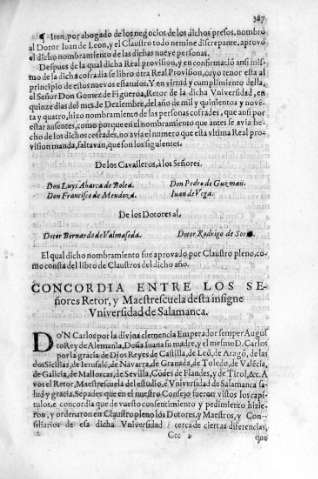 387
¶ Iten, por abogado de los negocios de los dichos presos, nombrò
al Dotor Iuan de Leon, y el Claustro todo nemine discrepante, aprovò
el dicho nombramiento de las dichas nueve personas.
Despues de la qual dicha Real provision, y en confirmaciõ ansi mis-
mo de la dicha cofradia se libro otra Real Provision, cuyo tenor esta al
principio de estos nuevos estatutos. Y en virtud y cumplimiento della,
el Señor Don Gomez de Figueroa, Retor de la dicha Vniversidad, en
quinze dias del mes de Deziembre, del año de mil y quinientos y noven
ta y quatro, hizo nombramiento de las personas cofrades, que ansi por
estar ausentes, como porque en el nombramiento que antes se avia he-
cho de los dichos cofrades, no avia el numero que esta vltima Real pro
vision manda, faltavan, que son los siguientes.
De los Cavalleros, a los Señores.
Don Luys Abarca de Bolea.
Don Pedro de Guzman.
Don Francisco de Mendoza.
Iuan de Vega.
De los Dotores al,
Dotor Bernardo de Valmaseda.
Dotor Rodrigo de Soria.
El qual dicho nombramiento fue aprovado por Claustro pleno, co-
mo consta del libro de Claustros del dicho año.
CONCORDIA ENTRE LOS SE-
ñores Retor, y Maestrescuela desta insigne
Vniversidad de Salamanca.
DON Carlos por la divina clemencia Emperador semper Augus
to Rey de Alemania, Doña Iuana su madre, y el mismo D. Carlos
por la gracia de Dios Reyes de Castilla, de Leõ, de Aragõ, de las
dos Sicilias, de Ierusalẽ, de Navarra, de Granada, de Toledo, de Valẽcia,
de Galicia, de Mallorcas, de Sevilla, Cõdes de Flandes, y de Tirol, &c. A
vos el Retor, Maestrescuela del estudio, e Vniversidad de Salamanca sa-
lud y gracia. Sepades que en el nuestro Consejo fueron vistos los capi-
tulos, e concordia que de vuesto consentimiento y pedimiento hizie-
ron, y ordenaron en Claustro pleno los Dotores, y Maestros, y Con-
siliarios de esa dicha Vniversidad / cerca de ciertas diferencias,
Ccc 2
que